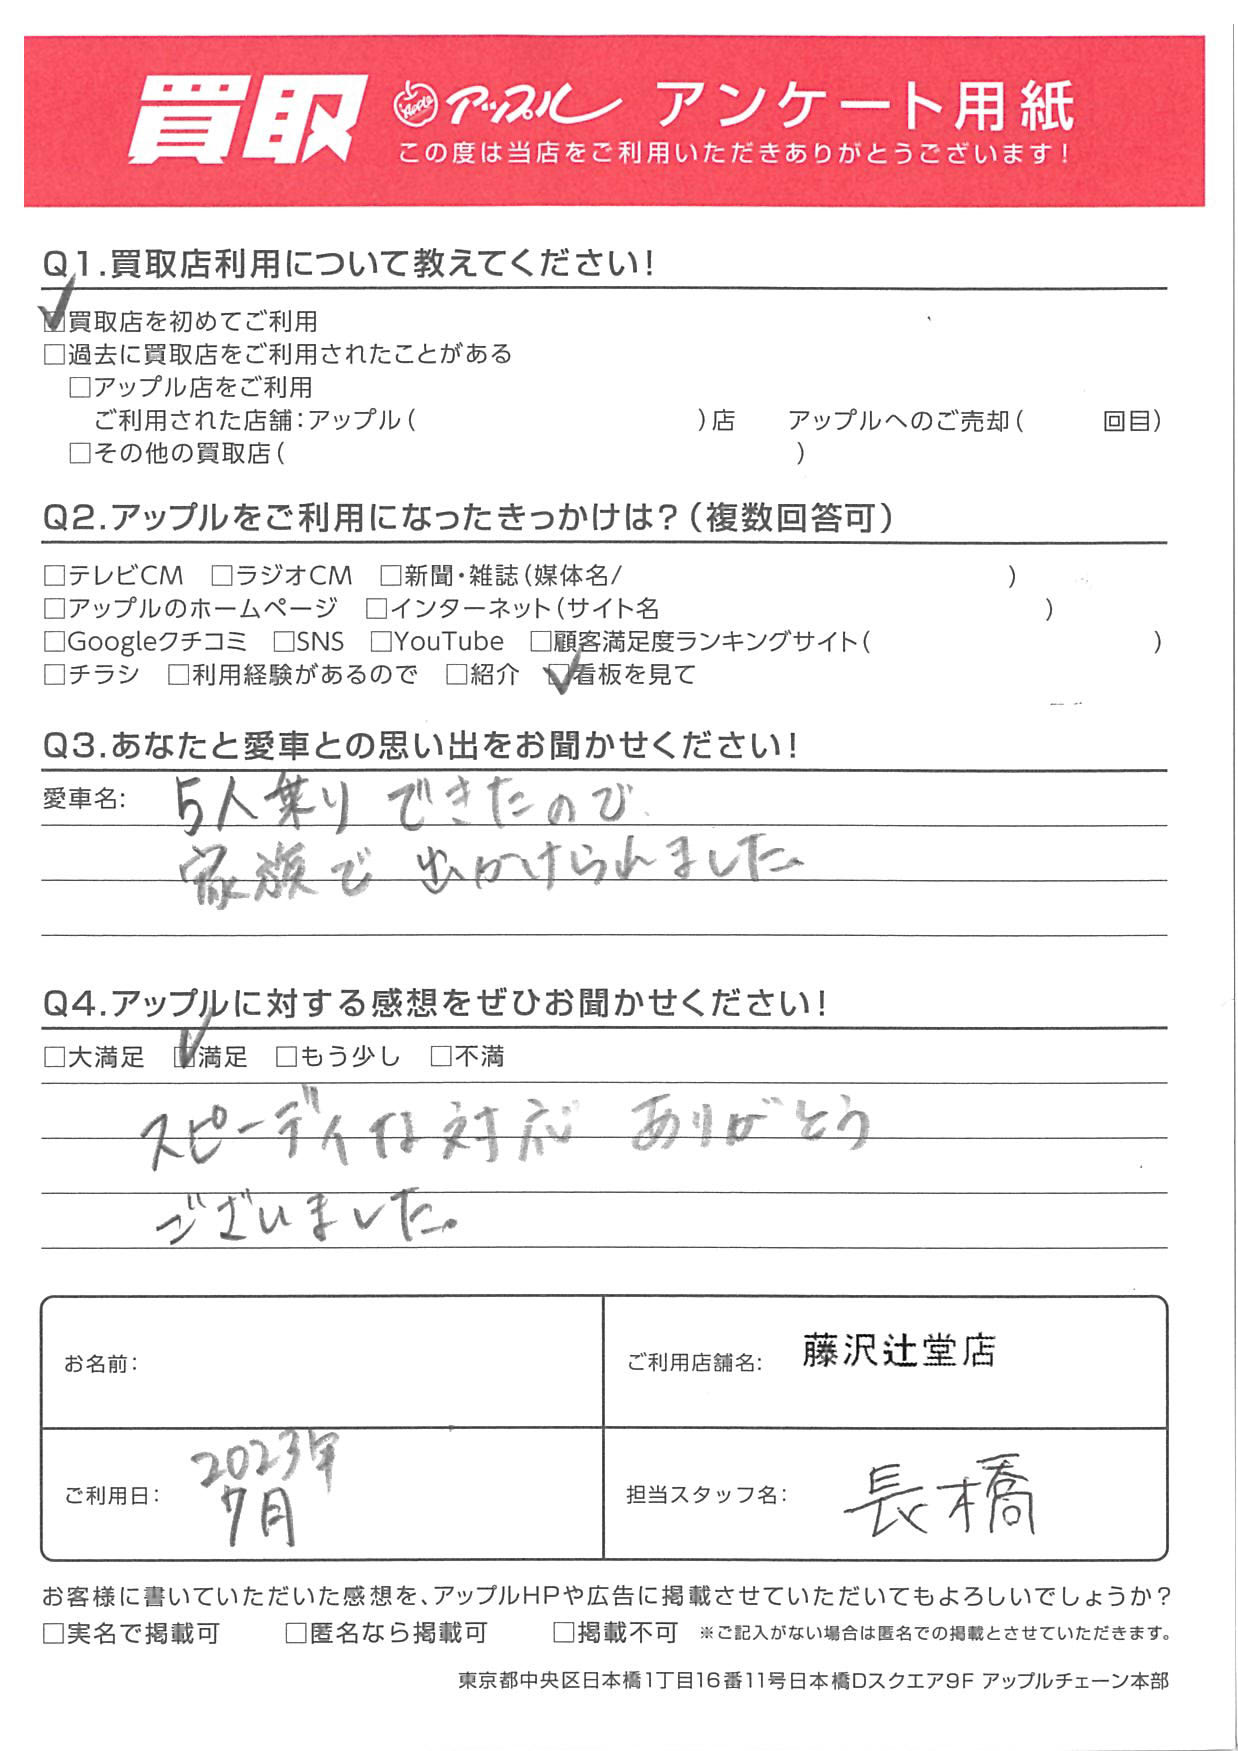 買取 Apple アップル アンケート用紙
この度は当店をご利用いただきありがとうございます!
Q1.買取店利用について教えてください!
☑買取店を初めてご利用
□過去に買取店をご利用されたことがある
□アップル店をご利用
ご利用された店舗:アップル( )店 アップルへのご売却( 回目)
□その他の買取店( )
Q2.アップルをご利用になったきっかけは?(複数回答可)
□テレビCM □ラジオCM □新聞・雑誌(媒体名/ )
□アップルのホームページ □インターネット(サイト名 )
□Googleクチコミ □SNS □YouTube □顧客満足度ランキングサイト( )
□チラシ □利用経験があるので □紹介 ☑看板を見て
Q3.あなたと愛車との思い出をお聞かせください!
愛車名: 5人乗りできたので
家族で出かけられました。
Q4.アップルに対する感想をぜひお聞かせください!
□大満足 ☑満足 □もう少し □不満
スピーディな対応 ありがとう
ございました。
お名前:
ご利用店舗名: 藤沢辻堂店
ご利用日: 2023年
7月
担当スタッフ名: 長橋
お客様に書いていただいた感想を、アップルHPや広告に掲載させていただいてもよろしいでしょうか?
□実名で掲載可 □匿名なら掲載可 □掲載不可 ※ご記入がない場合は匿名での掲載とさせていただきます。
東京都中央区日本橋1丁目16番11号日本橋Dスクエア9F アップルチェーン本部